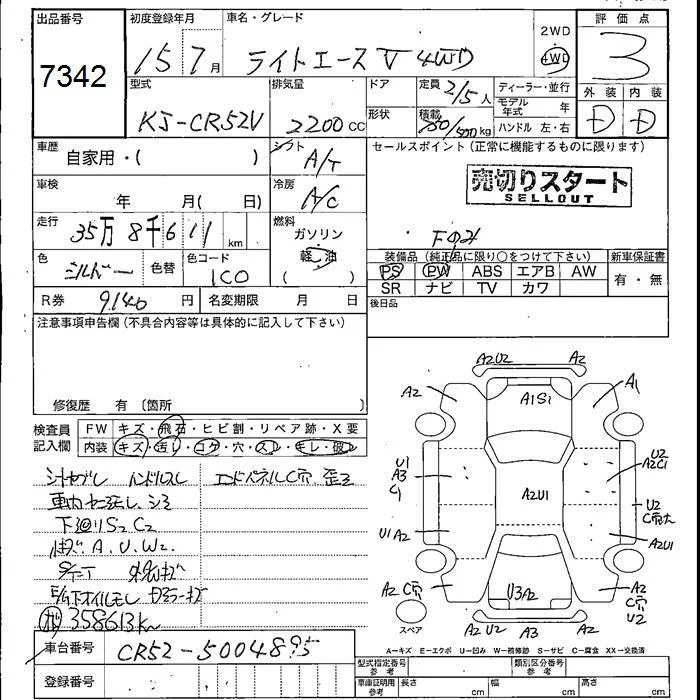 出品番号
7342
初度登録年月
15 7月
車名・グレード
ライトエース V 4WD
2WD
4WD
評価点
3
外装 内装
D D
型式
KJ-CR52V
排気量
2200 CC
ドア
形状
定員 2/5人
積載
500 kg
ディーラー・並行
モデル年式 年
ハンドル 左・右
車歴
自家用・( )
シフト
A/T
セールスポイント(正常に機能するものに限ります)
売切りスタート
SELLOUT
車検
年 月( 日)
冷房
A/C
走行
35万8千611 km
燃料
ガソリン
軽油
( )
色
シルバー
色替
色コード
1C0
装備品(純正品に限り○をつけて下さい)
PS PW ABS エアB AW
SR ナビ TV カワ
新車保証書
有・無
R券 9140 円
名変期限 月 日
後日品
注意事項申告欄(不具合内容等は具体的に記入して下さい)
修復歴 有 〔箇所 〕
検査員記入欄
FW キズ・飛石・ヒビ割・リペア跡・X要
内装 キズ・汚レ・コゲ・穴・スレ・モレ・破レ
ハンドルスレ
エンドパネルC穴 歪ミ
下廻りS2 C2
A.U.W2.
下オイルモレ
358613km
車台番号
CR52-5004895
登録番号
A2U2 A2
A2 A1S1 A1
U1
A3
C1
U2
A2C1
A2U1
U2
C穴大
U1A2
A2U1
A2 C穴
U3A2
A2
C穴
U2
スペア
A2 U2 A3 A2
A-キズ E-エクボ U-凹み W-補修跡 S-サビ C-腐食 XX-交換済
型式指定番号
参考
類別区分番号
参考
車庫証明用
参考
長さ cm
幅 cm
高さ cm